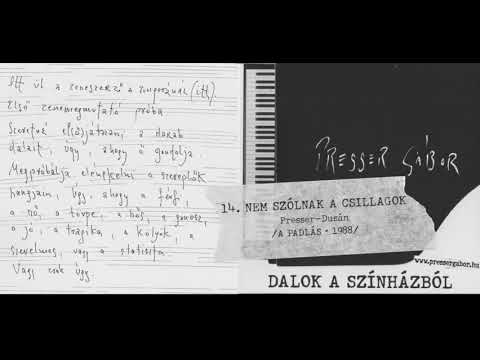 Itt ül a zeneszerző a zongoránál (itt).
Első zenemegmutató próba
Szeretné eljátszani a darab
dalait úgy, ahogy ő gondolja.
Megpróbálja elénekelni a szereplők
hangjain, úgy, ahogy a férfi,
a nő, a törpe, a hős, a gonosz,
a jó, a tragika, a kölyök, a
szerelmes, vagy a statiszta.
Vagy csak úgy.
PRESSER GÁBOR
14. NEM SZÓLNAK A CSILLAGOK
Presser-Dusán
/A PADLÁS - 1988/
www.pressergabor.hu
DALOK A SZÍNHÁZBÓL